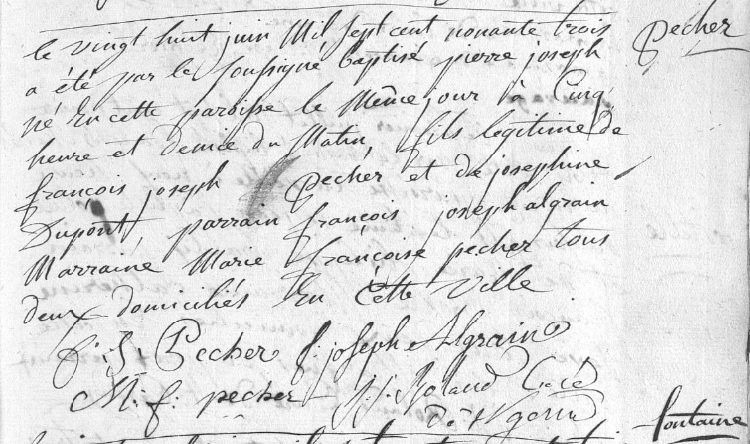 le vingt huit juin Mil sept cent nonante trois
Pecher
a été par le soussigné baptisé pierre joseph
né En cette paroisse le Même jour à Cinq
heure et demie du Matin, fils legitime de
françois joseph Pecher et de josephine
Dupont parrain françois joseph algrain
Marraine Marie françoise pecher tous
deux domiciliés En Cette Ville
f: j: Pecher f: joseph Algrain
M: f: pecher j. j. Roland Curé
fontaine